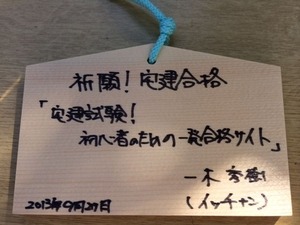 祈願！宅建合格
「宅建試験！
初心者のための一発合格サイト」
一木秀樹
(イッチャン)
2013年9月27日